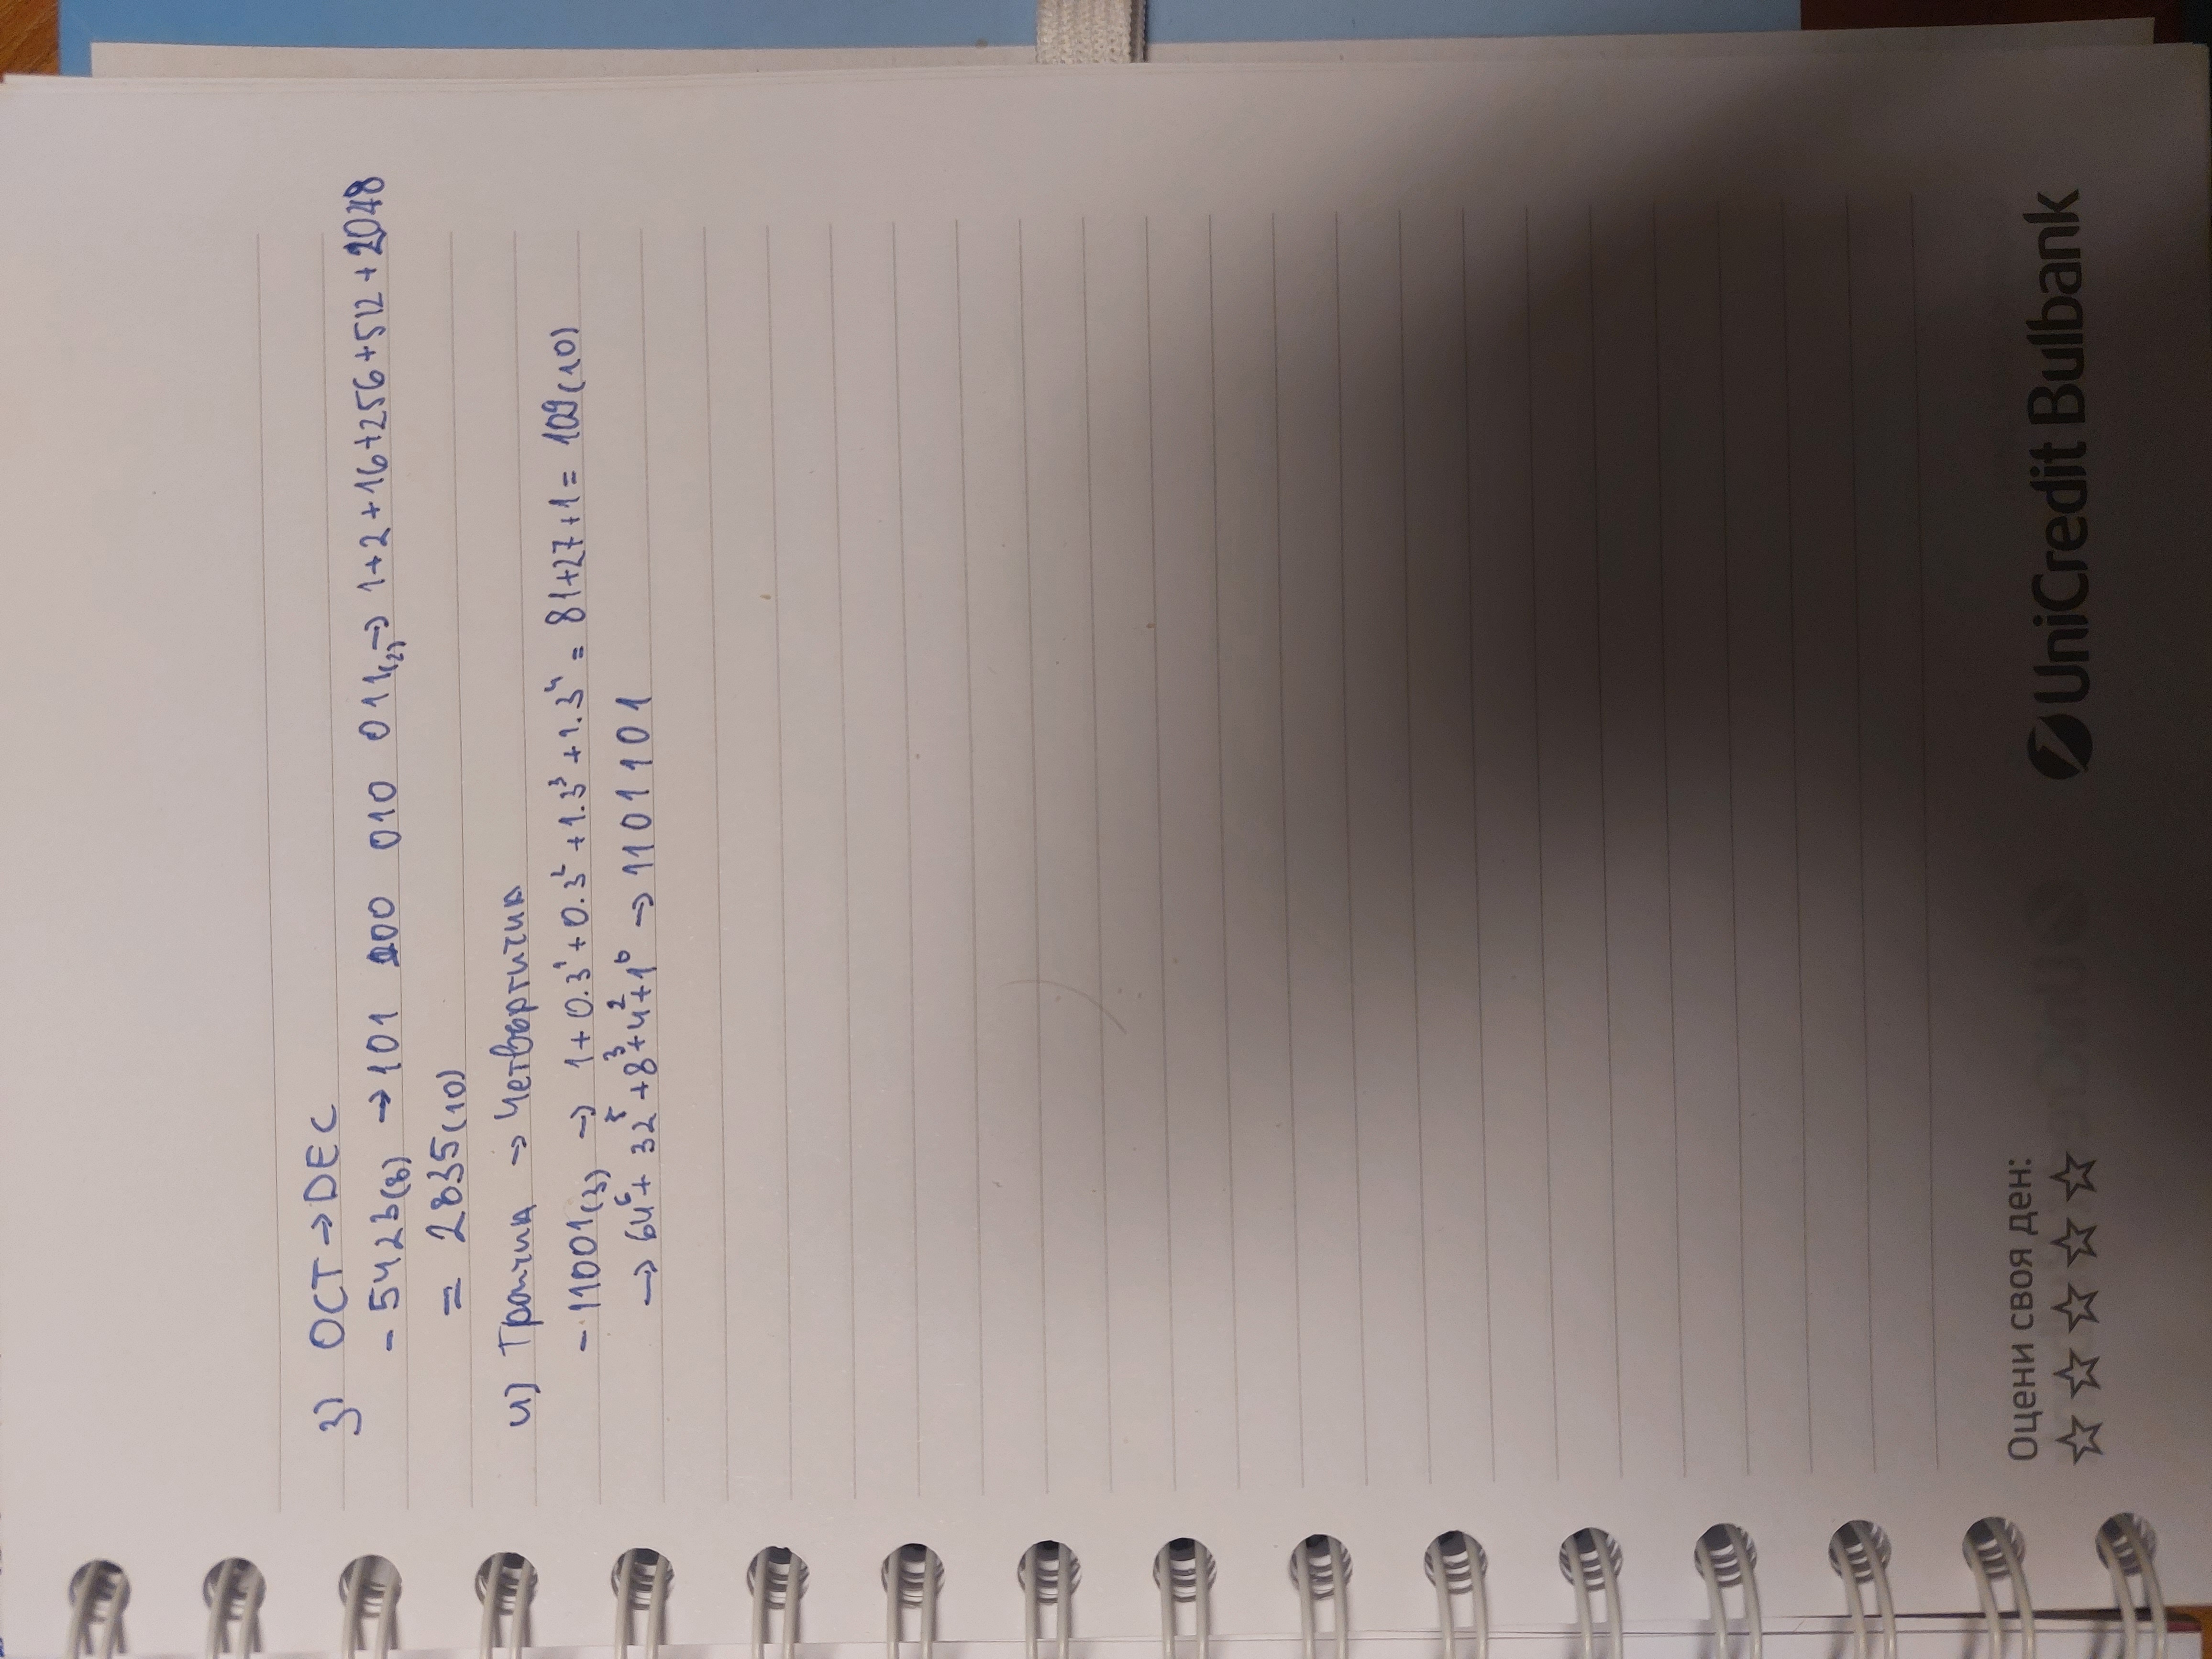 3) OCT → DEC
- 5423(8) → 101 100 010 011(2) → 1+2+16+256+512+2048
= 2835(10)
4) Троична → Четвъртична
- 11001(3) → 1+0.3¹+0.3²+1.3³+1.3⁴ = 81+27+1 = 109(10)
→ 64⁶+ 32⁵+8³+4²+1⁰ → 1101101
Оцени своя ден:
UniCredit Bulbank